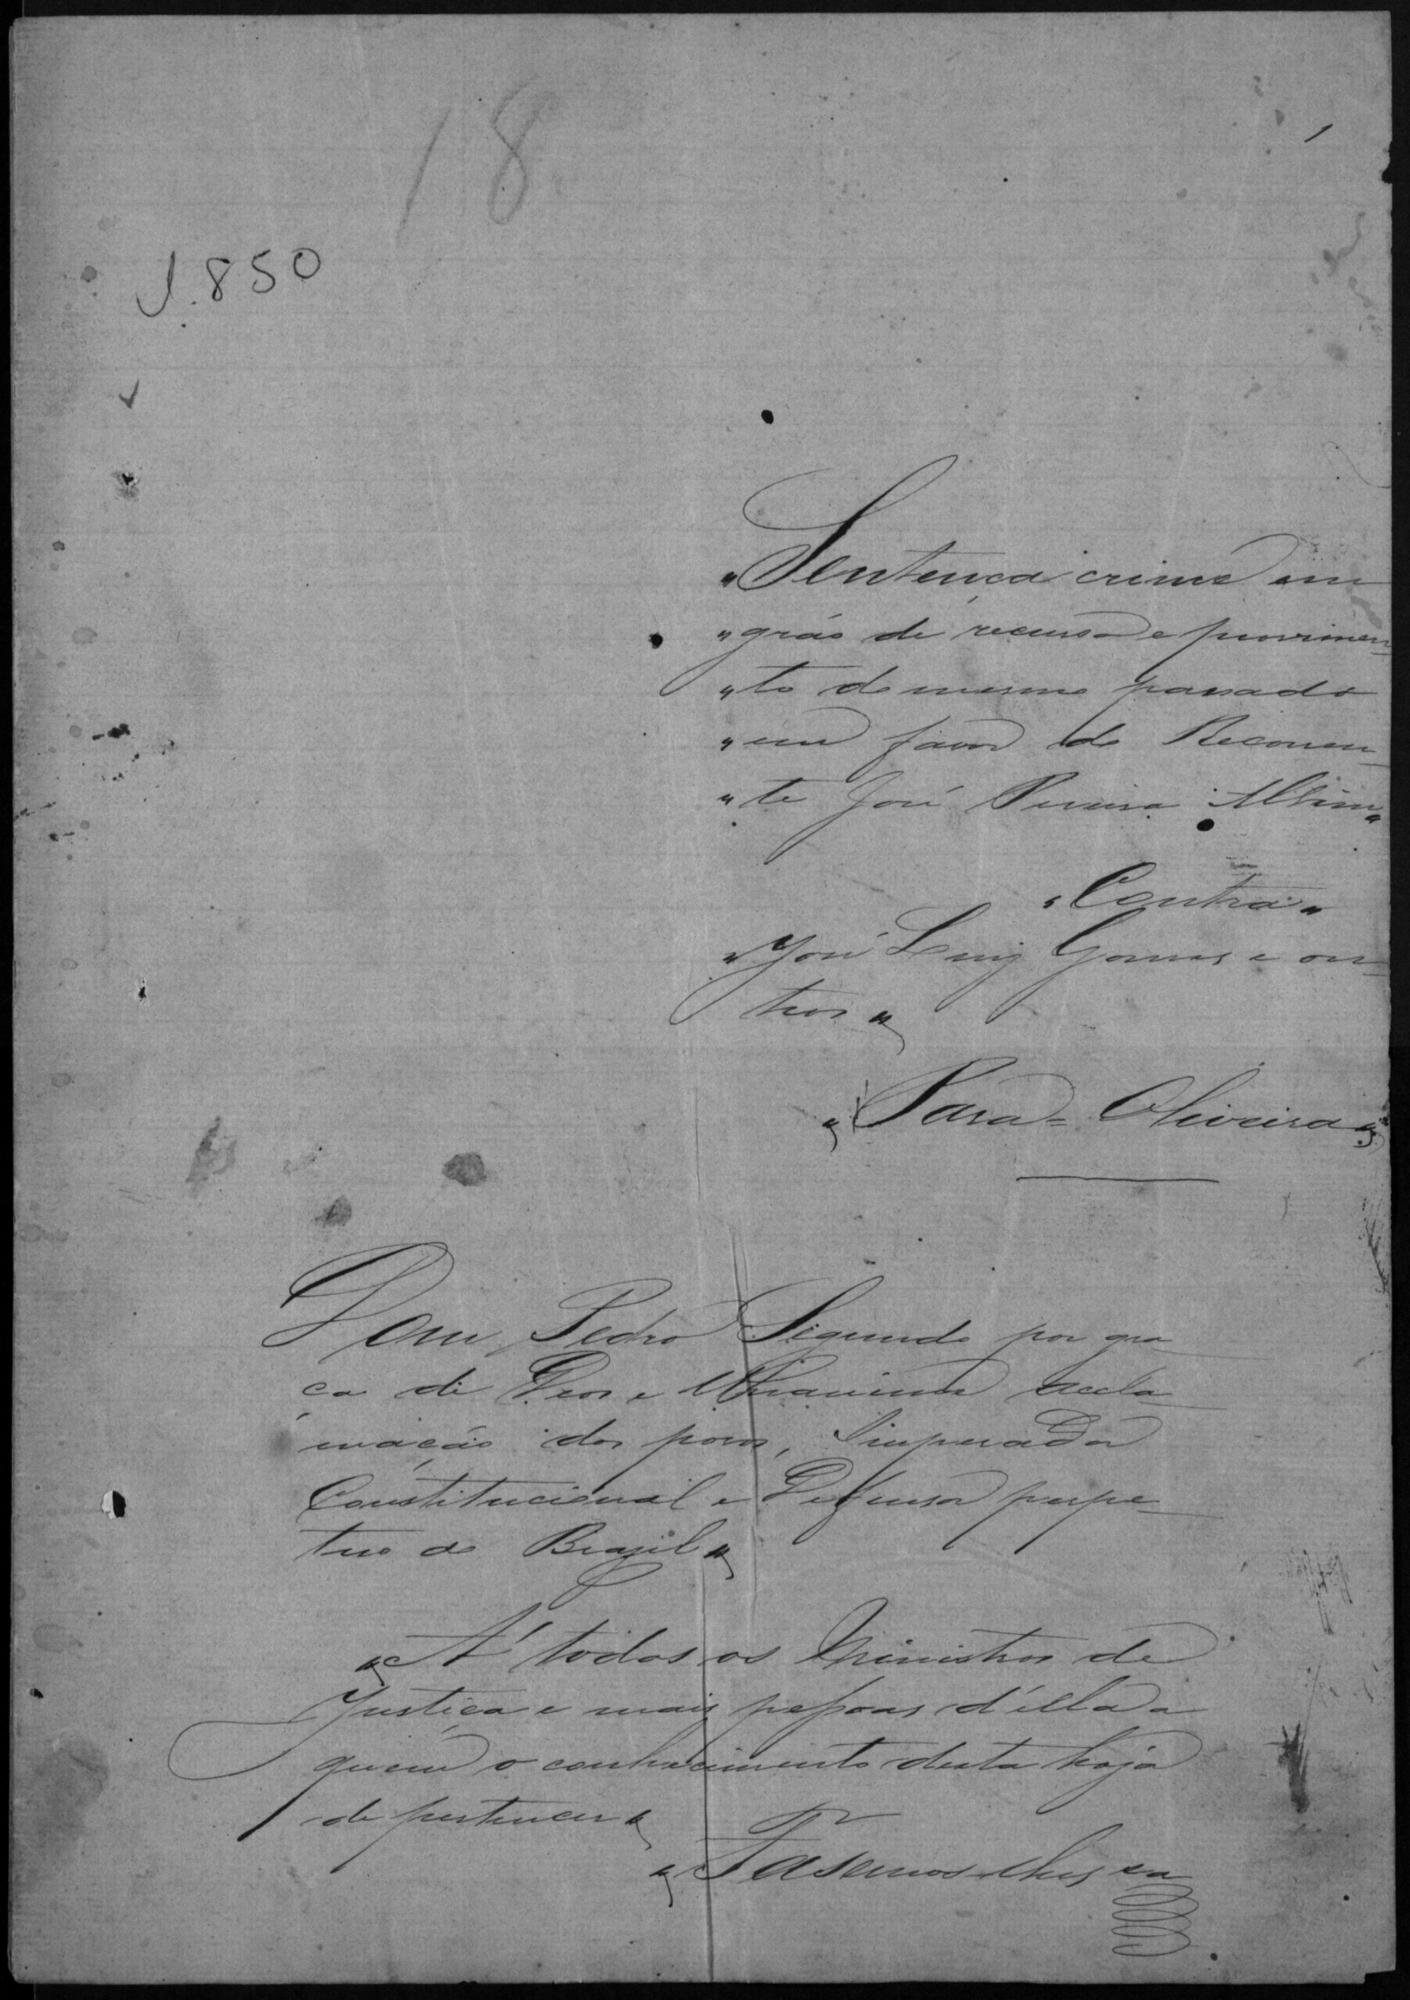 18
1
J. 850
"Sentença crime em
"gráo de recurso e provimen-
"to do mesmo passado
"em favor do Recorren-
"te José Pereira
"Contra"
"José Luiz Gomes e ou-
tros"
"Para = Oliveira"
Dom Pedro Segundo por gra-
ça de Deos e Unanime accla-
mação dos povos, Imperador
Constitucional e Defensor perpe-
tuo do Brazil"
"A' todos os Ministros de
Justiça e mais pessoas d'ella a
quem o conhecimento desta haja
de pertencer"
"Fasemos-lhes sa